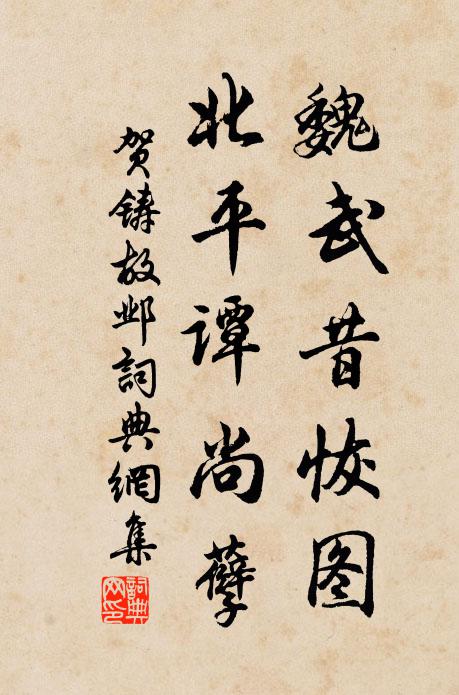 魏武昔恢图
北平谭尚孽
贺铸故邺詞典網集
詞典网印